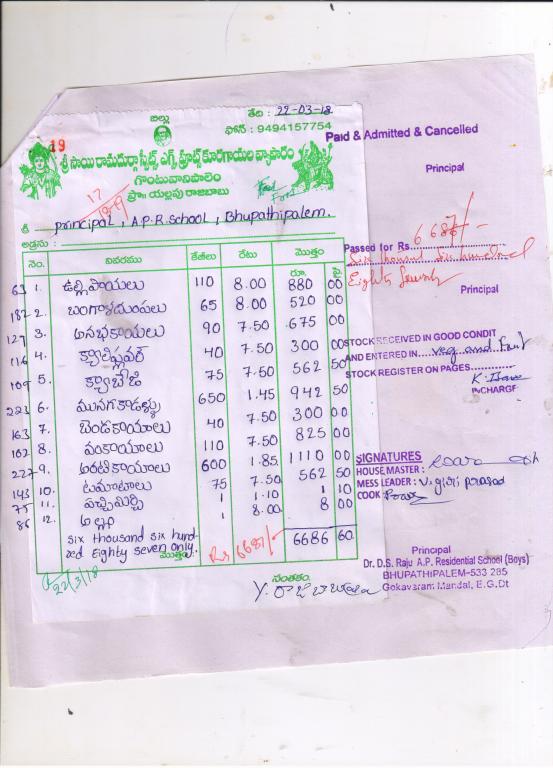 బిల్లు
తేది : 22-03-18
ఫోన్ : 9494157754
19
శ్రీ సాయి రామదుర్గా స్వీట్స్, ఎగ్స్, ఫ్రూట్స్ కూరగాయల వ్యాపారం
గొంటువానిపాలెం
ప్రొ॥ యల్లపు రాజబాబు
17
శ్రీ Principal, A.P.R.School, Bhupathipalem.
అడ్రసు :
నెం. వివరము కేజీలు రేటు మొత్తం
రూ. పై.
63 1. ఉల్లిపాయలు 110 8.00 880 00
182 2. బంగాళదుంపలు 65 8.00 520 00
127 3. ఆనభకాయలు 90 7.50 675 00
116 4. క్యాలీఫ్లవర్ 40 7.50 300 00
109 5. క్యాబేజి 75 7.50 562 50
223 6. మునగకాడళ్ళు 650 1.45 942 50
163 7. బెండకాయలు 40 7.50 300 00
162 8. వంకాయలు 110 7.50 825 00
227 9. అరటికాయలు 600 1.85 1110 00
143 10. టమాటాలు 75 7.50 562 50
75 11. పచ్చిమిర్చి 1 1.10 1 10
86 12. అల్లం 1 8.00 8 00
Six thousand six hund-
red Eighty seven only.
మొత్తం Rs 6687/- 6686 60
22/3/18
సంతకం
Y. రాజబాబు
Paid & Admitted & Cancelled
Principal
Passed for Rs. 6687/-
Six thousand Six hundred
Eighty Seven
Principal
STOCK RECEIVED IN GOOD CONDIT
AND ENTERED IN..... veg and Fruit
STOCK REGISTER ON PAGES..........
INCHARGE
SIGNATURES
HOUSE MASTER :
MESS LEADER : V. giri prasad
COOK :
Principal
Dr. D.S. Raju A.P. Residential School (Boys)
BHUPATHIPALEM-533 285
Gokavaram Mandal, E.G.Dt